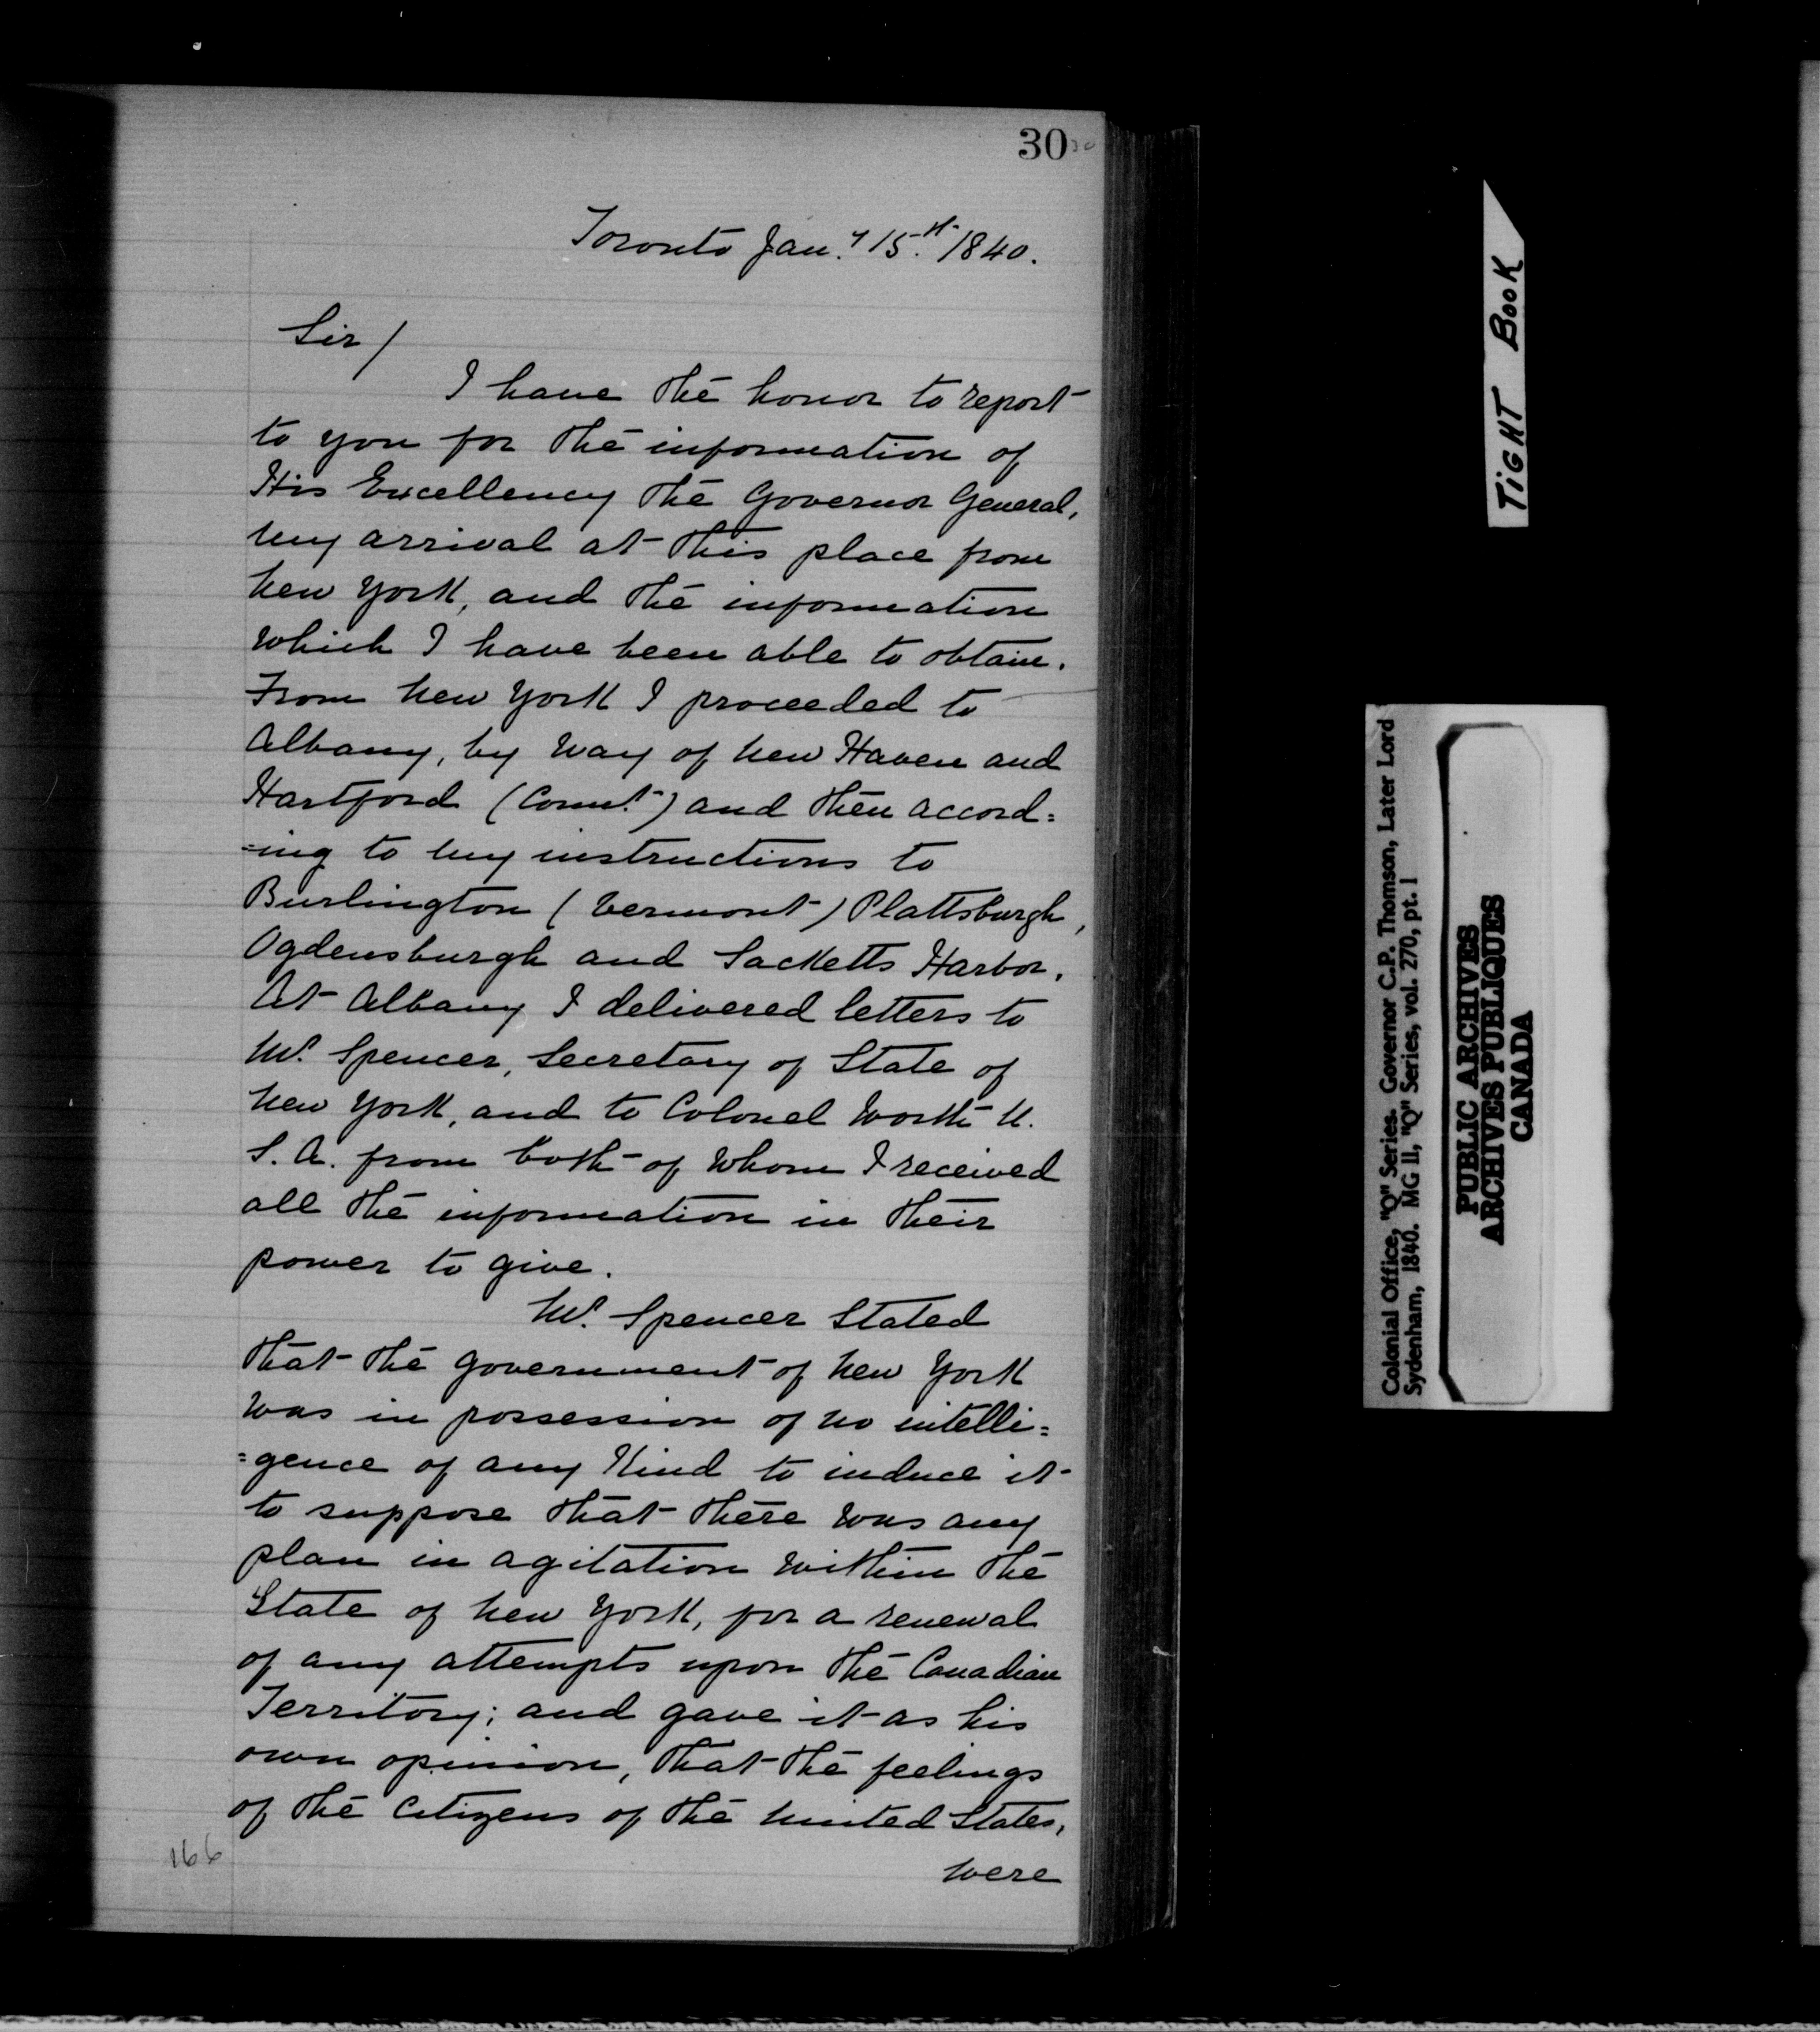 30
30
Toronto Jan.y 15.th 1840.
Sir/
I have the honor to report
to you for the information of
His Excellency the Governor General,
my arrival at this place from
New York, and the information
which I have been able to obtain.
From New York I proceeded to
Albany, by way of New Haven and
Hartford (Connt.) and then accord=
=ing to my instructions to
Burlington (Vermont) Plattsburgh,
Ogdensburgh and Sacketts Harbor.
At Albany I delivered letters to
Mr. Spencer, Secretary of State of
New York, and to Colonel Worth U.
S. A. from both of whom I received
all the information in their
power to give.
Mr. Spencer Stated
that the government of New York
was in possession of no intelli=
=gence of any Kind to induce it
to suppose that there was any
plan in agitation within the
State of New York, for a renewal
of any attempts upon the Canadian
Territory; and gave it as his
own opinion, that the feelings
of the Citizens of the United States,
were
166
TIGHT BOOK
Colonial Office, "Q" Series. Governor C.P. Thomson, Later Lord
Sydenham, 1840. MG 11, "Q" Series, vol. 270, pt. 1
PUBLIC ARCHIVES
ARCHIVES PUBLIQUES
CANADA